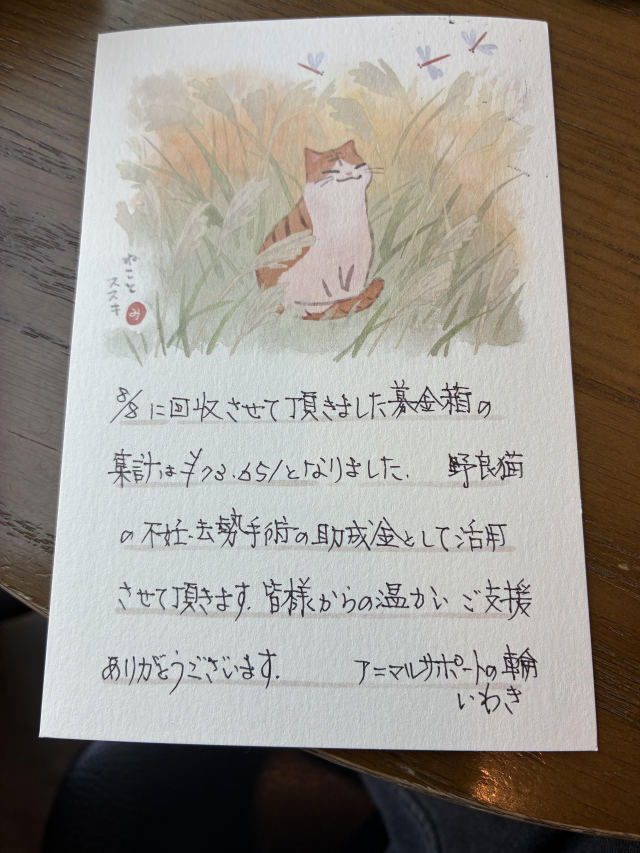 ねこと
ススキ
み
8/8に回収させて頂きました募金箱の
集計は¥73.651となりました. 野良猫
の不妊.去勢手術の助成金として活用
させて頂きます.皆様からの温かい ご支援
ありがとうございます. アニマルサポートの輪
いわき